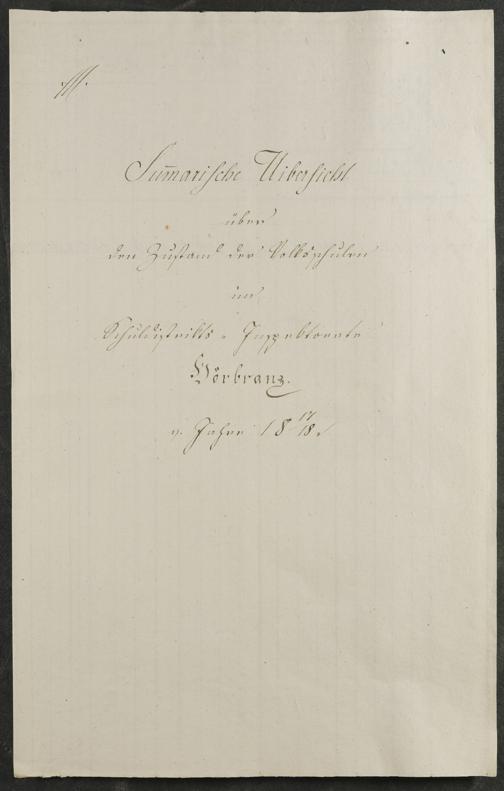 Sum̅arische Uibersicht
über
den Zustand der Volksschulen
im
Schuldistrikts-Inspektorate
Hörbranz.
v. Jahre 18 17/18.